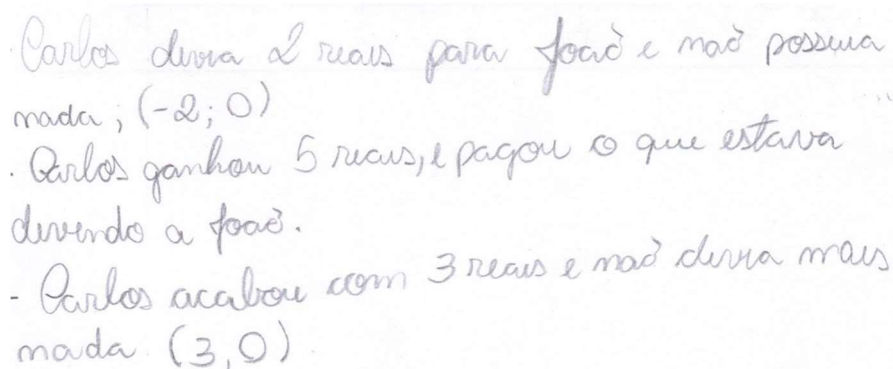 . Carlos devia 2 reais para João e não possuia
nada; (-2; 0)
. Carlos ganhou 5 reais, e pagou o que estava
devendo a João.
- Carlos acabou com 3 reais e não devia mais
nada. (3,0)